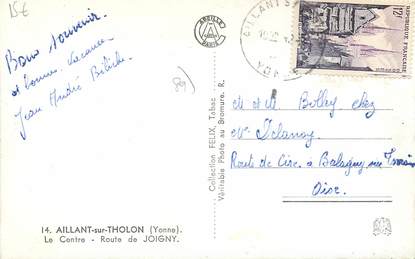 15€
Bons souvenirs
et bonnes vacances
Jean André
89
ABEILLE
PARIS
AILLANT S
YONNE
12F
REPUBLIQUE FRANÇAISE
M et M Bolley chez
Mr Delanoy
Route de Cire à Balagny sur Therain
Oise
Collection FELIX, Tabac
Véritable Photo au Bromure. R.
14. AILLANT-sur-THOLON (Yonne).
Le Centre - Route de JOIGNY.